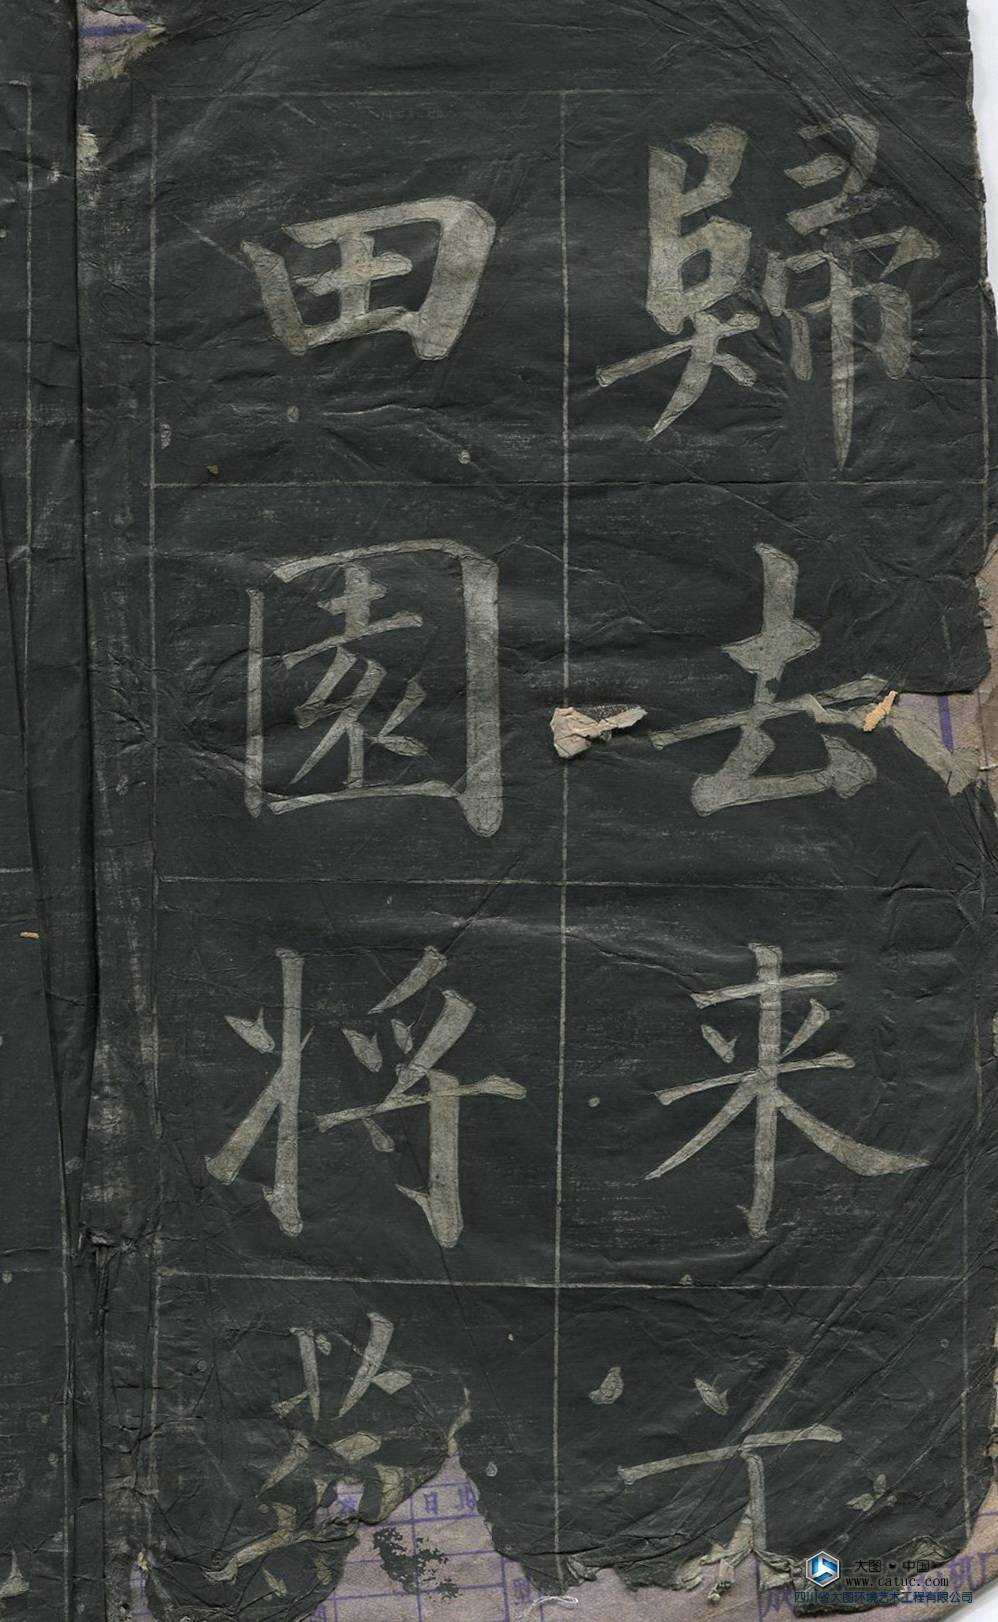 歸去来兮
田園将
大图·中国
www.catuc.com
四川省大图环境艺术工程有限公司
日